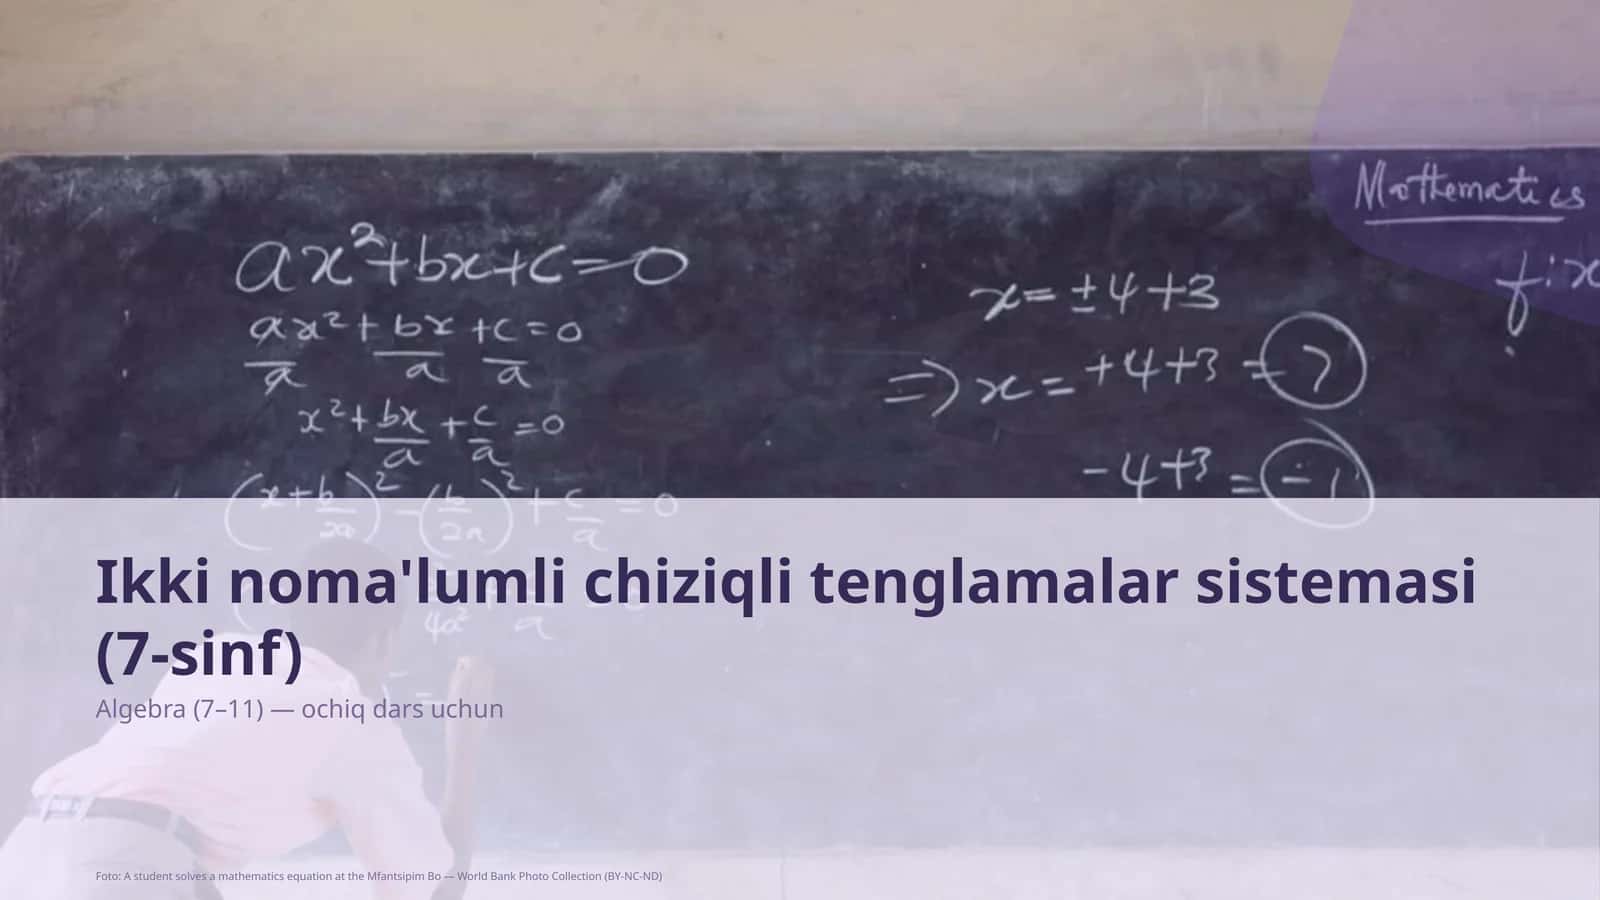 Mathematics
fix
ax²+bx+c=0
ax²/a + bx/a + c/a = 0
x² + bx/a + c/a = 0
(x+b/2a)² - (b/2a)² + c/a = 0
4a² a
x = ±4+3
⇒ x = +4+3 = 7
-4+3 = -1
Ikki noma'lumli chiziqli tenglamalar sistemasi
(7-sinf)
Algebra (7–11) — ochiq dars uchun
Foto: A student solves a mathematics equation at the Mfantsipim Bo — World Bank Photo Collection (BY-NC-ND)